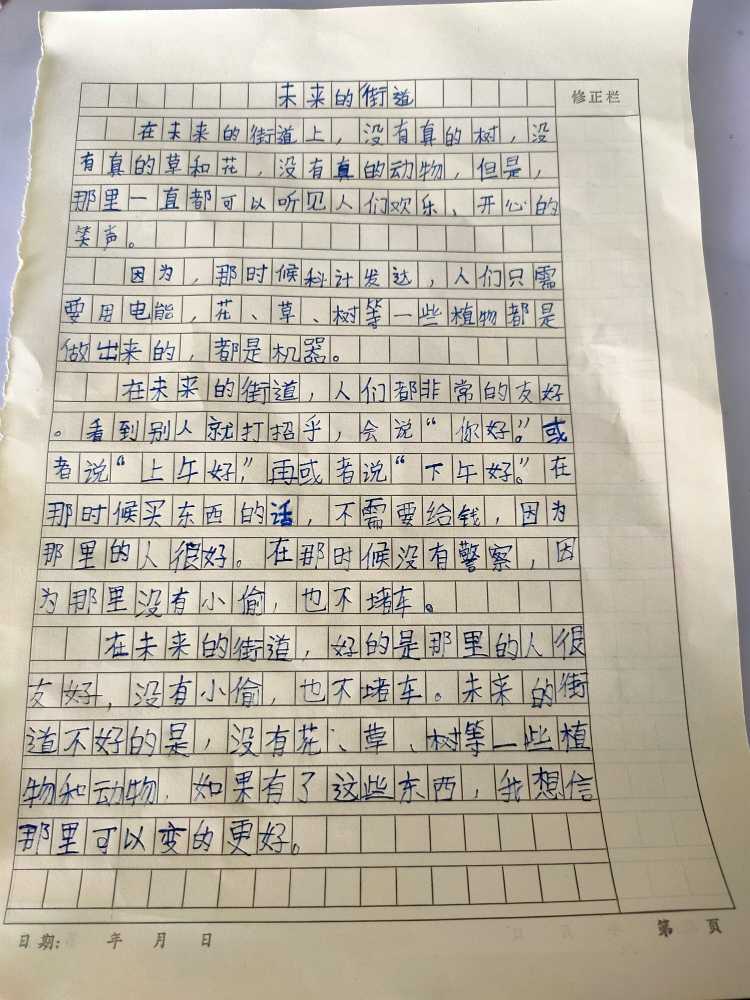 未来的街道
修正栏
在未来的街道上，没有真的树，没
有真的草和花，没有真的动物，但是，
那里一直都可以听见人们欢乐、开心的
笑声。
因为，那时候科计发达，人们只需
要用电能，花、草、树等一些植物都是
做出来的，都是机器。
在未来的街道，人们都非常的友好
。看到别人就打招乎，会说“你好”。或
者说“上午好”，再或者说“下午好”。在
那时候买东西的话，不需要给钱，因为
那里的人很好。在那时候没有警察，因
为那里没有小偷，也不堵车。
在未来的街道，好的是那里的人很
友好，没有小偷，也不堵车。未来的街
道不好的是，没有花、草、树等一些植
物和动物．如果有了这些东西，我想信
那里可以变的更好。
日期： 年 月 日
第 页